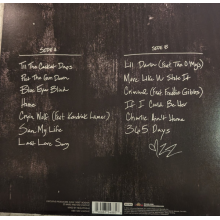 SIDE A
Til The Casket Drops
Put The Gun Down
Blue Eyed Blind
Home
Cryin Wolf (feat Kendrick Lamar)
Save My Life
Last Love Song
SIDE B
Lil Dawin (feat The O'My's)
More Like You Stole It
Criminal (feat Freddie Gibbs)
If I Could Be Her
Charlie Ain't Home
365 Days
ZZ